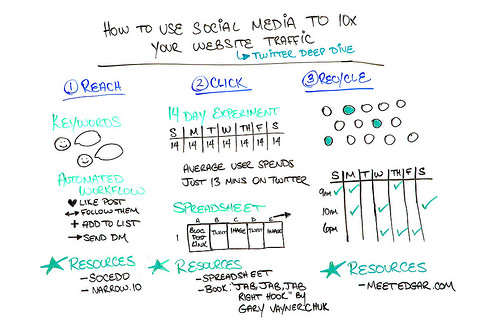 HOW TO USE SOCIAL MEDIA TO 10X
YOUR WEBSITE TRAFFIC
↳ TWITTER DEEP DIVE
① REACH
KEYWORDS
AUTOMATED
WORKFLOW
♥ LIKE POST
↔ FOLLOW THEM
+ ADD TO LIST
→ SEND DM
★ RESOURCES
- SOCEDO
- NARROW.IO
② CLICK
14 DAY EXPERIMENT
S M T W TH F S
14 14 14 14 14 14 14
AVERAGE USER SPENDS
JUST 13 MINS ON TWITTER
SPREADSHEET
A B C D E
1 BLOG POST LINK TWEET IMAGE TWEET IMAGE
★ RESOURCES
- SPREADSHEET
- BOOK: "JAB, JAB, JAB
RIGHT HOOK" BY
GARY VAYNERCHUK
③ RECYCLE
S M T W TH F S
9am ✓ ✓ ✓
10am ✓ ✓ ✓
6pm ✓ ✓ ✓
★ RESOURCES
- MEETEDGAR.COM